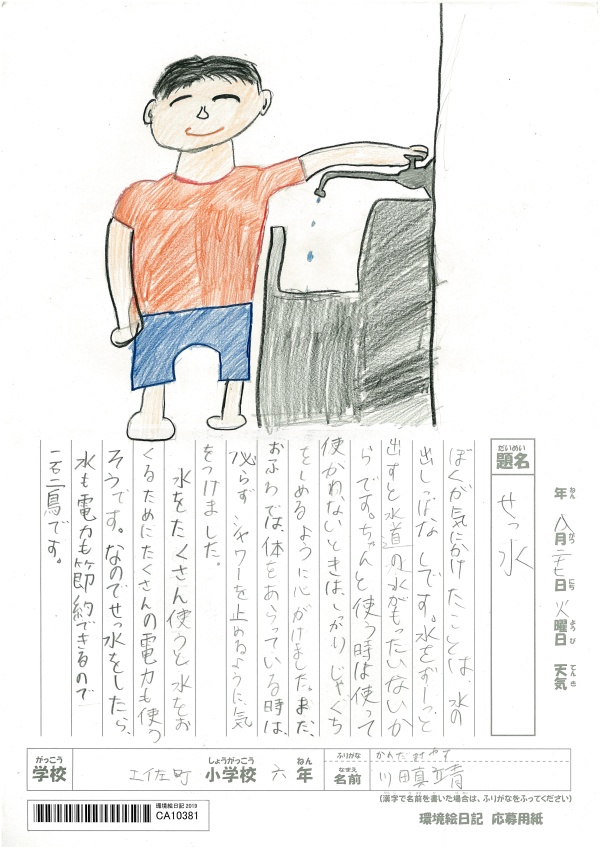 年 八月 二七日 火曜日 天気
ねん がつ にち ようび てんき
だいめい
題名
せっ水
ぼくが気にかけたことは、水の
出しっぱなしです。水をずーっと
出すと水道の水がもったいないか
らです。ちゃんと使う時は使って
使かわないときは、しっかりじゃぐち
をしめるように心がけました。また、
おふろでは、体をあらっている時は、
必らずシャワーを止めるように気
をつけました。
水をたくさん使うと水をお
くるためにたくさんの電力も使う
そうです。なのでせっ水をしたら、
水も電力も節約できるので
一石二鳥です。
がっこう しょうがっこう ねん
学校 土佐町 小学校 六年
ふりがな
なまえ
名前 川田
(漢字で名前を書いた場合は、ふりがなをふってください)
環境絵日記 2019
CA10381
環境絵日記 応募用紙